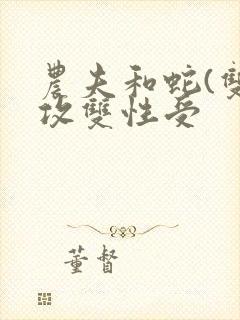 農夫和蛇(雙
攻雙性受
董督